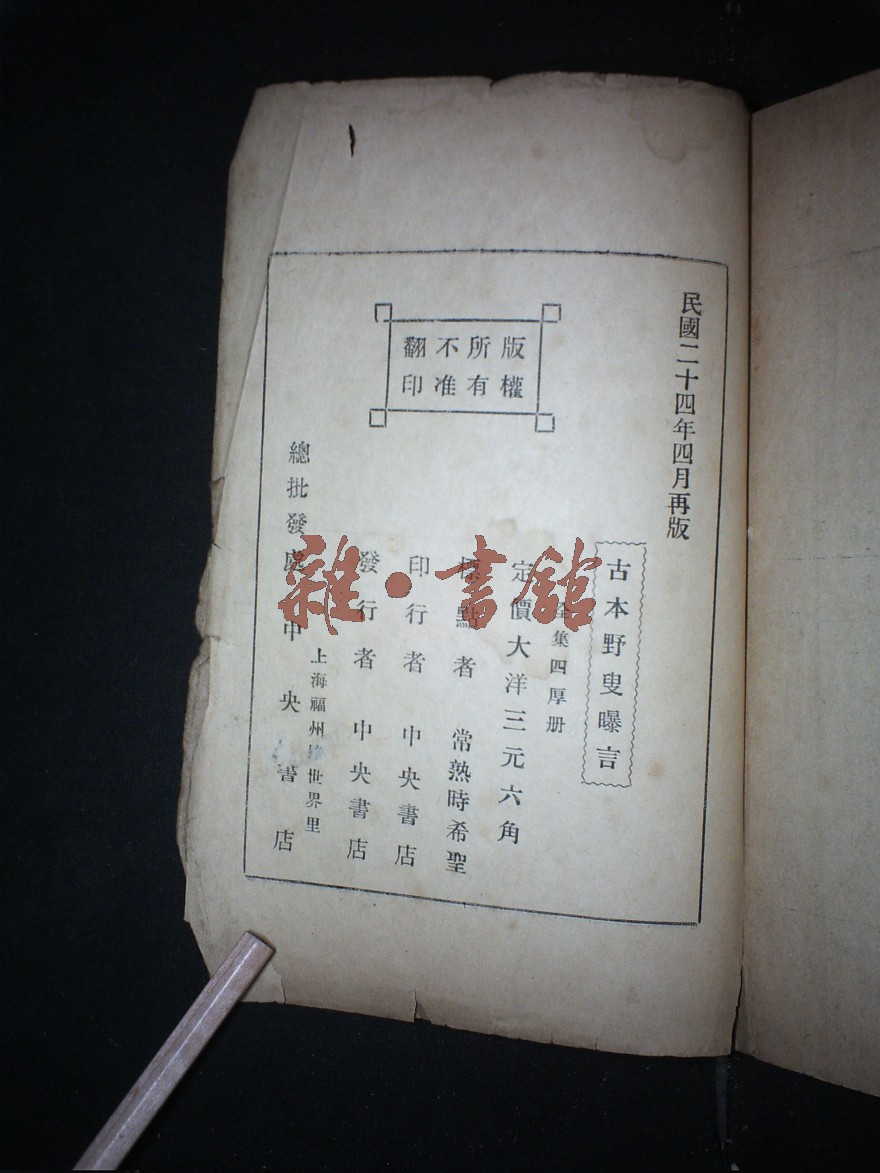 民國二十四年四月再版
古本野叟曝言
全集四厚册
定價大洋三元六角
標點者 常熟時希聖
印行者 中央書店
發行者 中央書店
上海福州路世界里
總批發處中央書店
版權
所有
不准
翻印
雜·書館